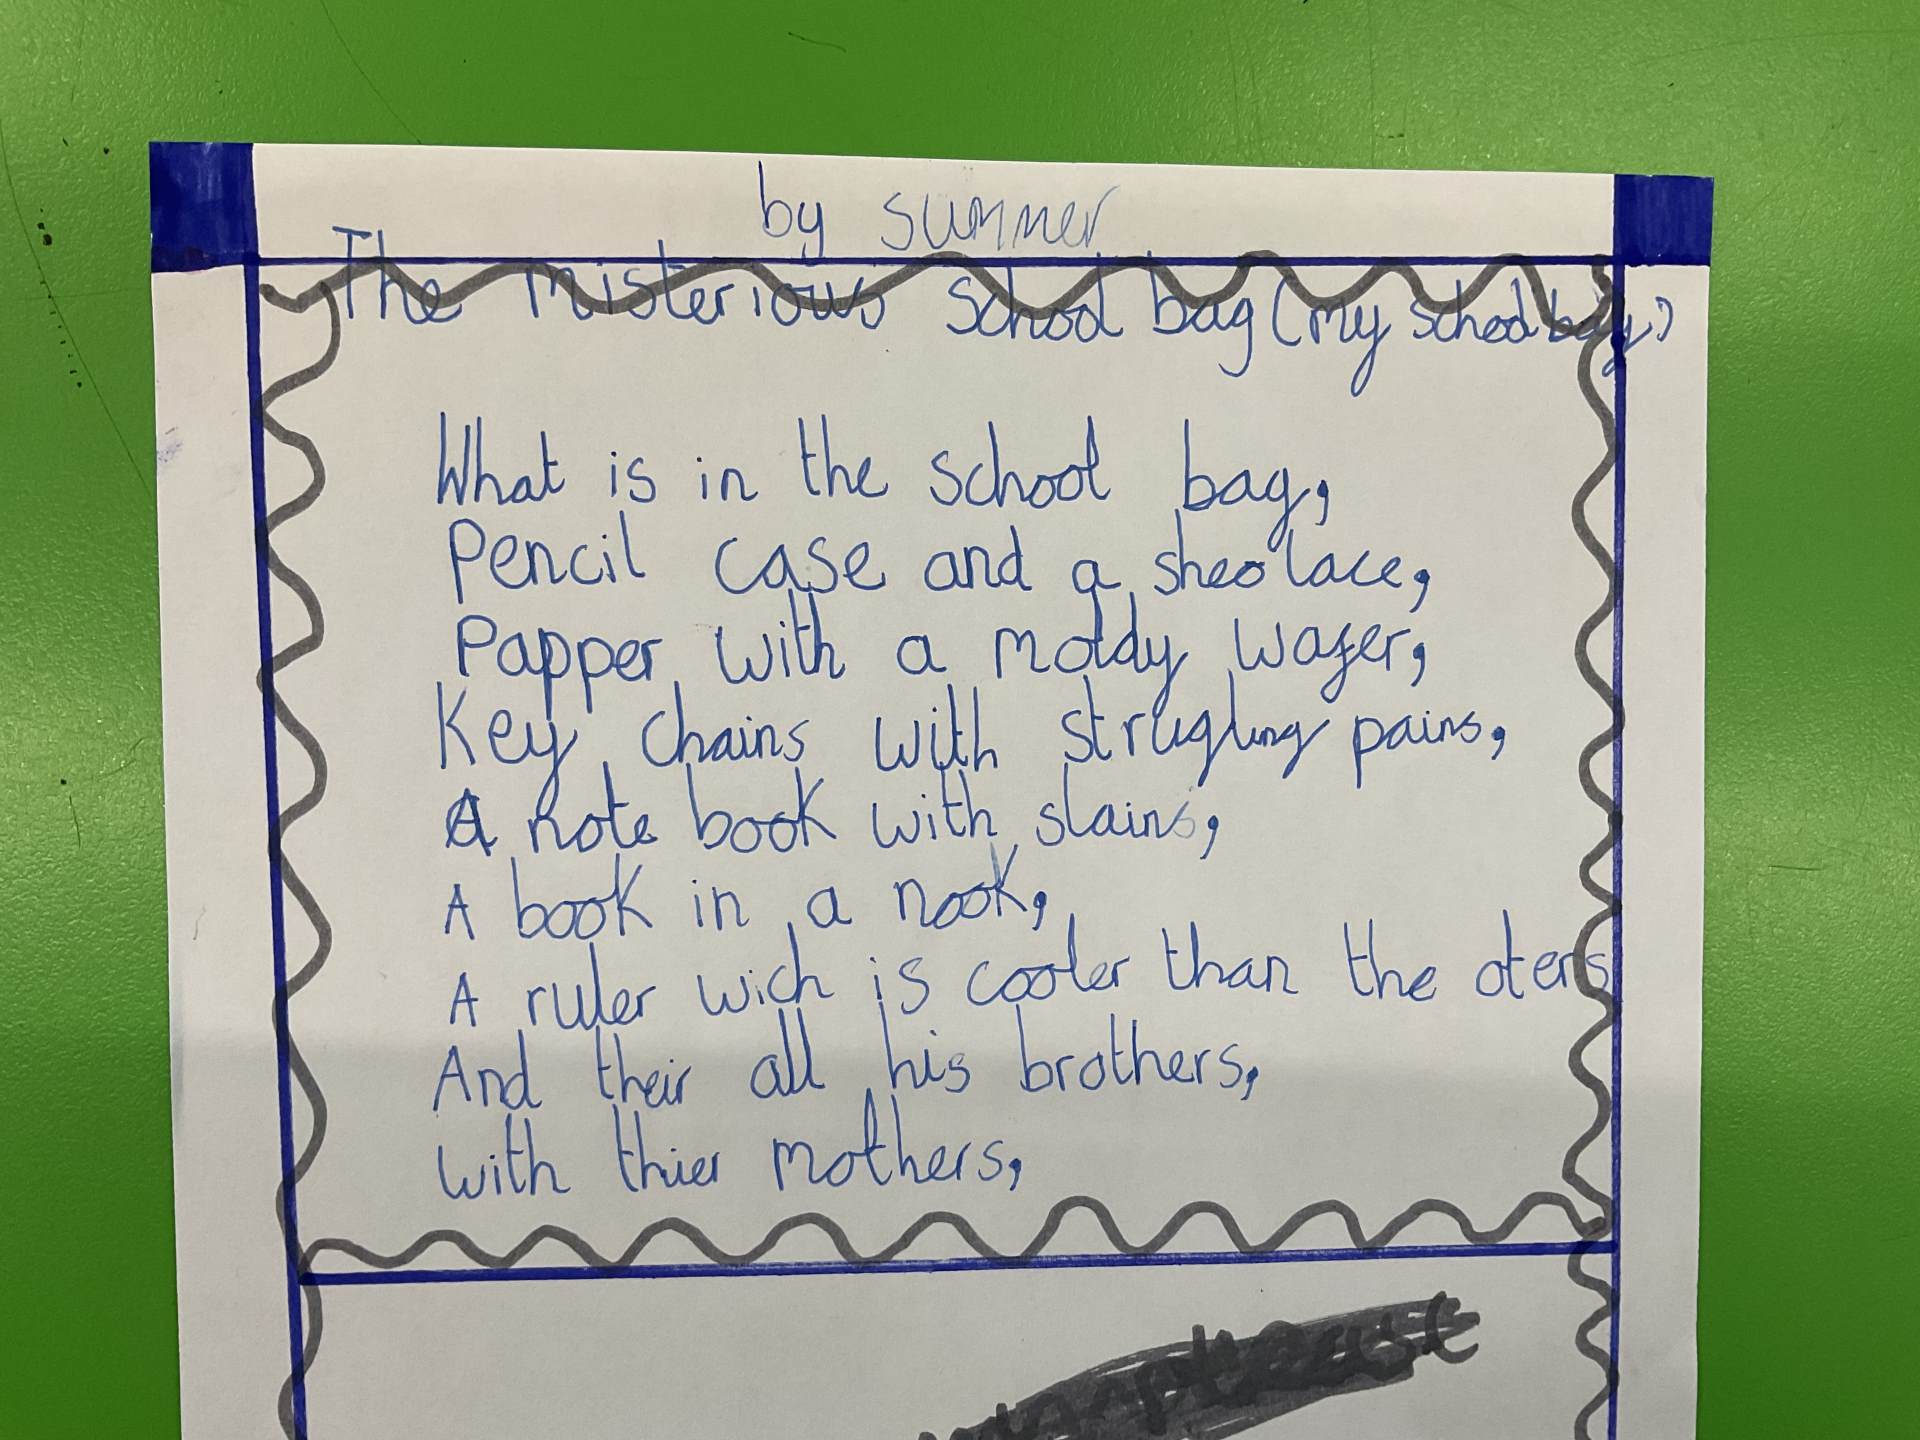 by summer
The misterious school bag (my school bag)
What is in the school bag,
Pencil case and a sheo lace,
Papper with a moldy wafer,
Key chains with strugling pains,
A note book with stains,
A book in a nook,
A ruler wich is cooler than the oters
And their all his brothers,
with thier mothers,